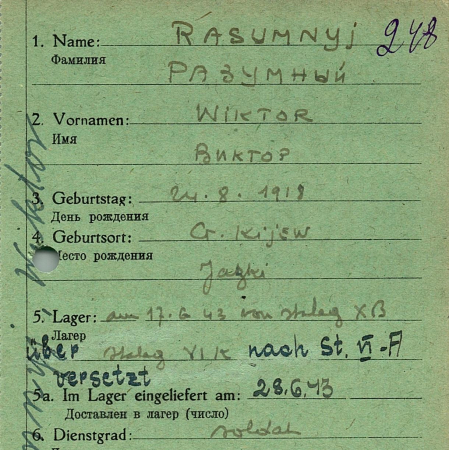 1. Name: RASUMNYJ 248
Фамилия РАЗУМНЫЙ
2. Vornamen: WIKTOR
Имя
Виктор
3. Geburtstag: 24. 8. 1919
День рождения
4. Geburtsort: G. Kijew
Место рождения
Jazki
5. Lager: am 17. 6 43 von Stalag XB
Лагер
über Stalag VI/K nach St. VI-A
versetzt
5a. Im Lager eingeliefert am: 28.6.43
Доставлен в лагер (число)
6. Dienstgrad: soldat